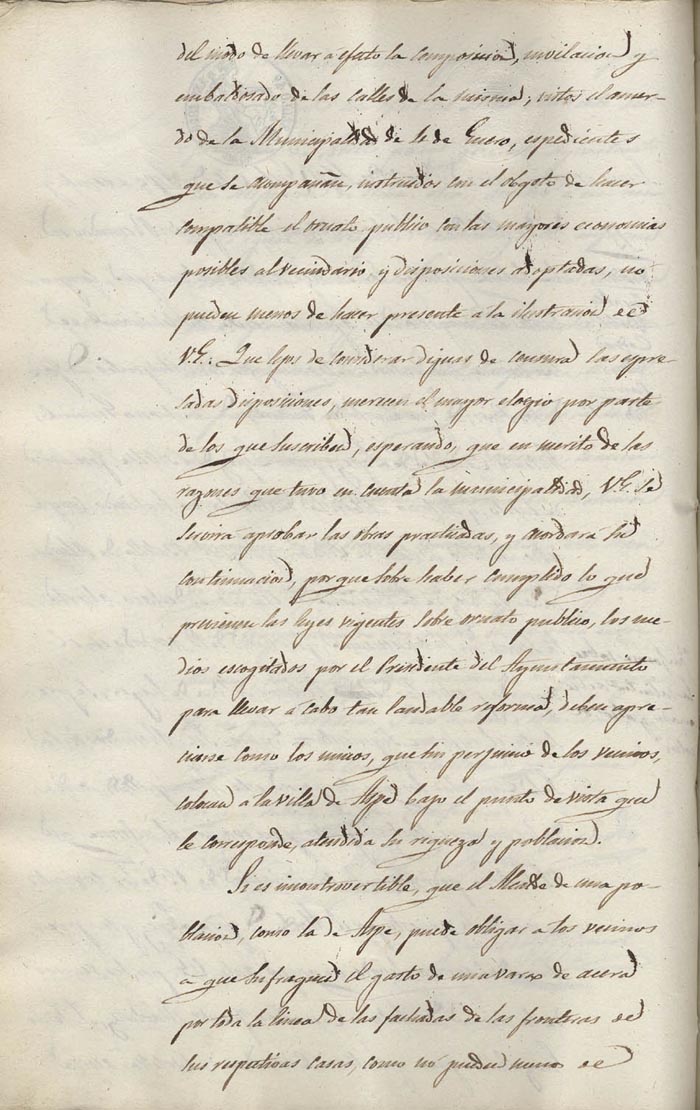 del modo de llevar a efecto la composicion, nivelacion y
embaldosado de las calles de la misma; vistos el acuer-
do de la Municipalidad de 4 de Enero, espedientes
que se acompañan, instruidos con el objeto de hacer
compatible el ornato publico con las mayores economias
posibles al vecindario y disposiciones adoptadas, no
pueden menos de hacer presente a la ilustracion de
V.E. Que lejos de considerar dignas de censura las espre-
sadas disposiciones, merecen el mayor elogio por parte
de los que suscriben, esperando, que en merito de las
razones que tuvo en cuenta la municipalidad, V.E. se
servirá aprobar las obras practicadas, y acordará su
continuacion, por que sobre haber cumplido lo que
previenen las leyes vigentes sobre ornato publico, los me-
dios escogitados por el Presidente del Ayuntamiento
para llevar a cabo tan laudable reforma, deben apre-
ciarse como los unicos, que sin perjuicio de los vecinos,
colocan a la villa de Aspe bajo el punto de vista que
le corresponde, atendida su riqueza y poblacion.
Si es incontrovertible, que el Alcalde de una po-
blacion, como la de Aspe, puede obligar a los vecinos
a que sufraguen el gasto de una vara de acera
por toda la linea de las fachadas de las fronteras de
sus respectivas casas, como no pueden menos de